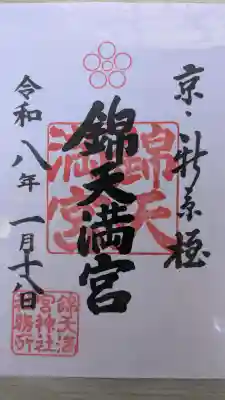 京・新京極
錦天満宮
錦天
満宮
令和八年一月十八日
錦天満
宮神社
務所